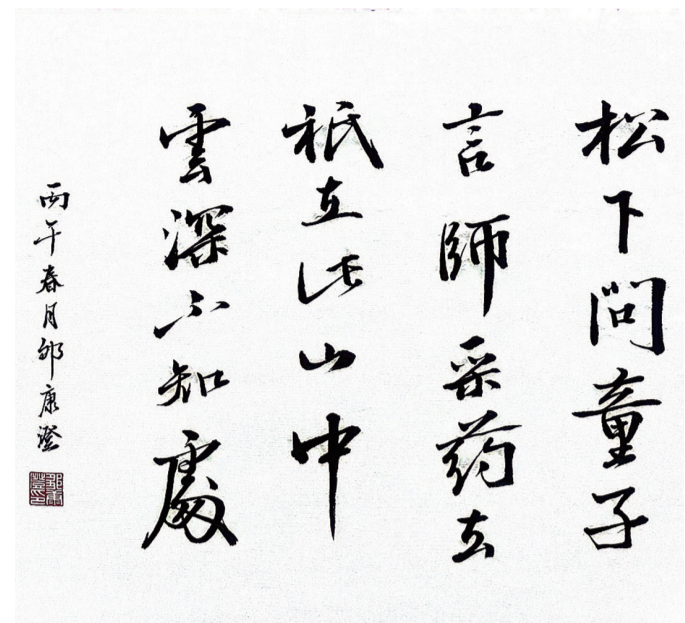 松下問童子
言師采药去
祇在此山中
雲深不知處
丙午春月邹康澄